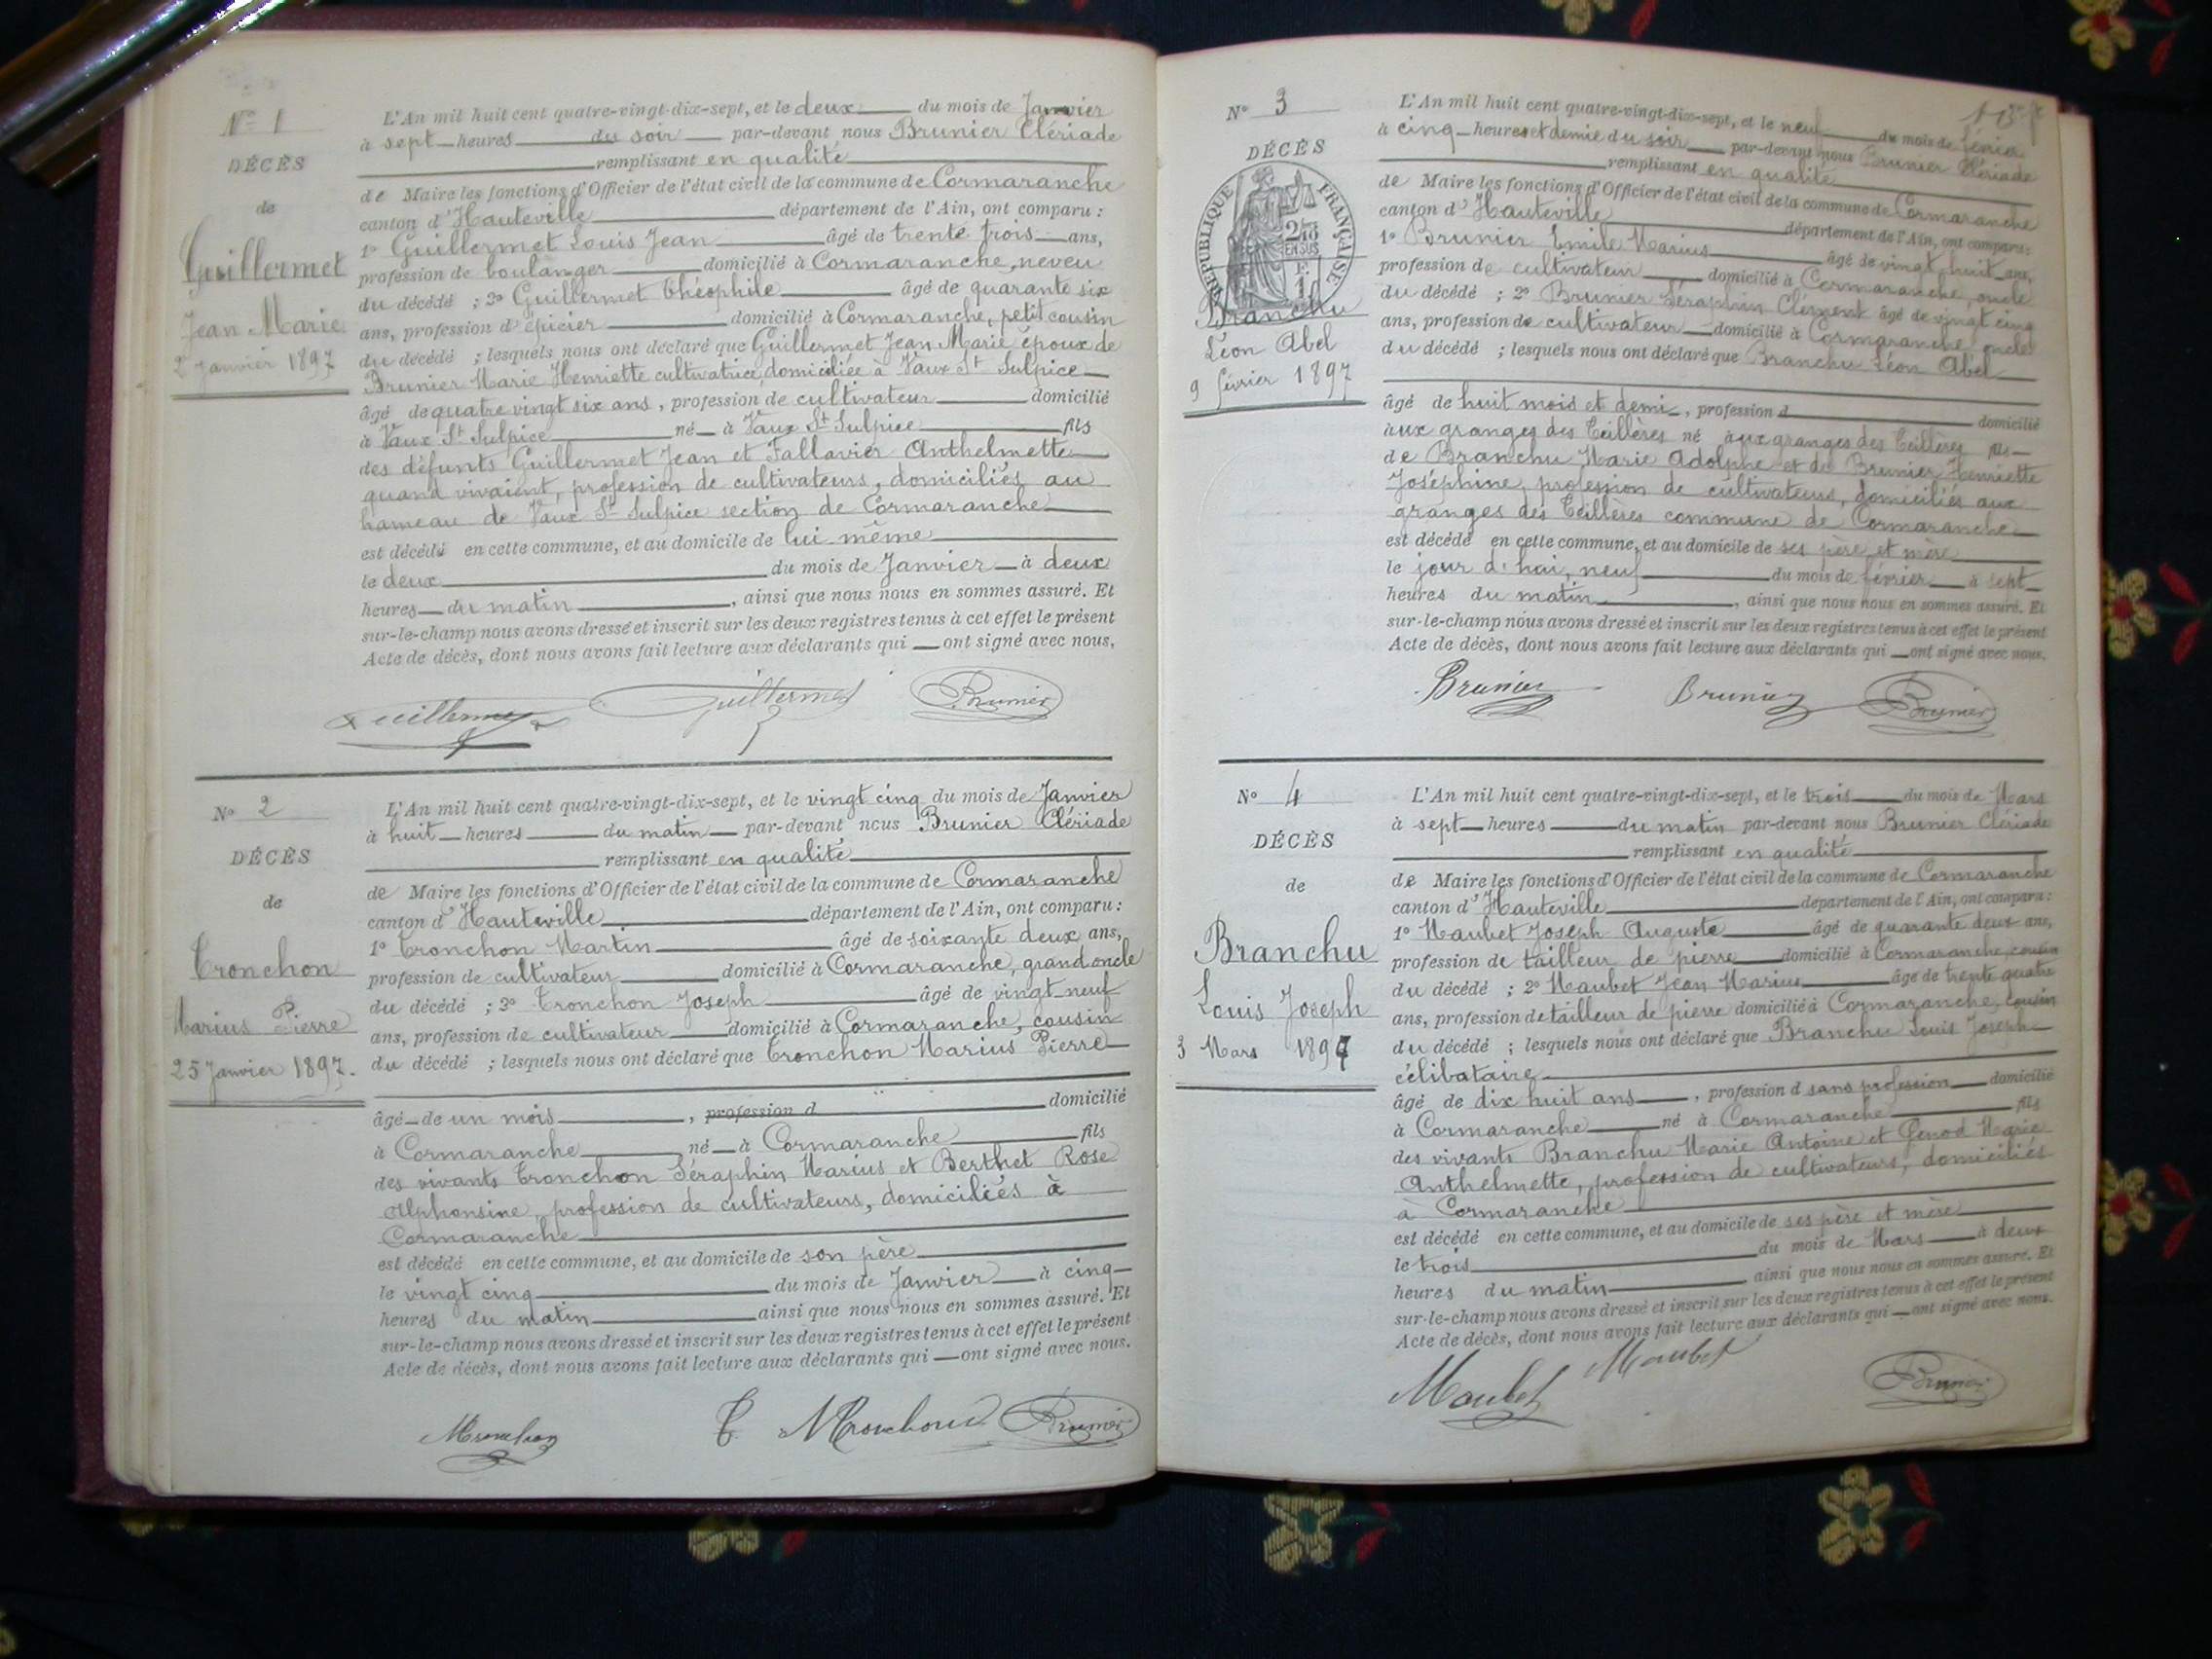 N° 1
DÉCÈS
de
Guillermet
Jean Marie
2 Janvier 1897
L'An mil huit cent quatre-vingt-dix-sept, et le deux du mois de Janvier
à sept heures du soir par-devant nous Brunier Clériade
remplissant en qualité
de Maire les fonctions d'Officier de l'état civil de la commune de Cormaranche
canton d'Hauteville département de l'Ain, ont comparu :
1° Guillermet Louis Jean âgé de trente trois ans,
profession de boulanger domicilié à Cormaranche, neveu
du décédé ; 2° Guillermet Théophile âgé de quarante six
ans, profession d'épicier domicilié à Cormaranche, petit cousin
du décédé ; lesquels nous ont déclaré que Guillermet Jean Marie époux de
Brunier Marie Henriette cultivatrice, domiciliée à Vaux St Sulpice
âgé de quatre vingt six ans, profession de cultivateur domicilié
à Vaux St Sulpice né à Vaux St Sulpice fils
des défunts Guillermet Jean et Fallavier Anthelmette
quand vivaient, profession de cultivateurs, domiciliés au
hameau de Vaux St Sulpice section de Cormaranche
est décédé en cette commune, et au domicile de lui même
le deux du mois de Janvier à deux
heures du matin, ainsi que nous nous en sommes assuré. Et
sur-le-champ nous avons dressé et inscrit sur les deux registres tenus à cet effet le présent
Acte de décès, dont nous avons fait lecture aux déclarants qui ont signé avec nous.
Guillermet Guillermet Brunier
N° 2
DÉCÈS
de
Tronchon
Marius Pierre
25 Janvier 1897.
L'An mil huit cent quatre-vingt-dix-sept, et le vingt cinq du mois de Janvier
à huit heures du matin par-devant nous Brunier Clériade
remplissant en qualité
de Maire les fonctions d'Officier de l'état civil de la commune de Cormaranche
canton d'Hauteville département de l'Ain, ont comparu :
1° Tronchon Martin âgé de soixante deux ans,
profession de cultivateur domicilié à Cormaranche, grand oncle
du décédé ; 2° Tronchon Joseph âgé de vingt neuf
ans, profession de cultivateur domicilié à Cormaranche, cousin
du décédé ; lesquels nous ont déclaré que Tronchon Marius Pierre
âgé de un mois, profession d domicilié
à Cormaranche né à Cormaranche fils
des vivants Tronchon Séraphin Marius et Berthet Rose
Alphonsine, profession de cultivateurs, domiciliés à
Cormaranche
est décédé en cette commune, et au domicile de son père
le vingt cinq du mois de Janvier à cinq
heures du matin ainsi que nous nous en sommes assuré. Et
sur-le-champ nous avons dressé et inscrit sur les deux registres tenus à cet effet le présent
Acte de décès, dont nous avons fait lecture aux déclarants qui ont signé avec nous.
Brunier
N° 3
DÉCÈS
RÉPUBLIQUE FRANÇAISE
EN SUS
Branchu
Léon Abel
9 février 1897
L'An mil huit cent quatre-vingt-dix-sept, et le neuf du mois de février
à cinq heures et demie du soir par-devant nous Brunier Clériade
remplissant en qualité
de Maire les fonctions d'Officier de l'état civil de la commune de Cormaranche
canton d'Hauteville département de l'Ain, ont comparu :
1° Brunier Emile Marius âgé de vingt huit ans,
profession de cultivateur domicilié à Cormaranche, oncle
du décédé ; 2° Brunier Séraphin Clément âgé de vingt cinq
ans, profession de cultivateur domicilié à Cormaranche, oncle
du décédé ; lesquels nous ont déclaré que Branchu Léon Abel
âgé de huit mois et demi, profession d domicilié
aux granges des Teillères né aux granges des Teillères fils
de Branchu Marie Adolphe et de Brunier Henriette
Joséphine, profession de cultivateurs, domiciliés aux
granges des Teillères commune de Cormaranche
est décédé en cette commune, et au domicile de ses père et mère
le jour d'hui, neuf du mois de février à sept
heures du matin, ainsi que nous nous en sommes assuré. Et
sur-le-champ nous avons dressé et inscrit sur les deux registres tenus à cet effet le présent
Acte de décès, dont nous avons fait lecture aux déclarants qui ont signé avec nous.
Brunier Brunier Brunier
N° 4
DÉCÈS
de
Branchu
Louis Joseph
3 Mars 1897
L'An mil huit cent quatre-vingt-dix-sept, et le trois du mois de Mars
à sept heures du matin par-devant nous Brunier Clériade
remplissant en qualité
de Maire les fonctions d'Officier de l'état civil de la commune de Cormaranche
canton d'Hauteville département de l'Ain, ont comparu :
1° Maubet Joseph Auguste âgé de quarante deux ans,
profession de tailleur de pierre domicilié à Cormaranche, cousin
du décédé ; 2° Maubet Jean Marius âgé de trente quatre
ans, profession de tailleur de pierre domicilié à Cormaranche, cousin
du décédé ; lesquels nous ont déclaré que Branchu Louis Joseph
célibataire
âgé de dix huit ans, profession d sans profession domicilié
à Cormaranche né à Cormaranche fils
des vivants Branchu Marie Antoine et Genod Marie
Anthelmette, profession de cultivateurs, domiciliés
à Cormaranche
est décédé en cette commune, et au domicile de ses père et mère
le trois du mois de Mars à deux
heures du matin ainsi que nous nous en sommes assuré. Et
sur-le-champ nous avons dressé et inscrit sur les deux registres tenus à cet effet le présent
Acte de décès, dont nous avons fait lecture aux déclarants qui ont signé avec nous.
Maubet Maubet Brunier